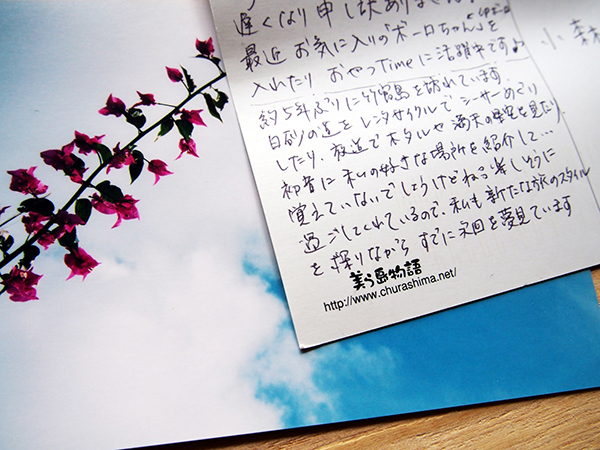 遅くなり申し訳ありません。
最近 お気に入りの「ボーロちゃん」を
入れたり おやつTimeに活躍中です♪
約5年ぶりに竹富島を訪れています。
白砂の道を レンタサイクルで シーサーめぐり
したり、夜道で ホタルや 満天の星空を見たり
初音に 私の好きな場所を 紹介して…
覚えていないでしょうけどね 楽しそうに
過ごしてくれているので、私も 新たな旅のスタイル
を 探りながら すでに次回を夢見ています
美ら島物語
http://www.churashima.net/
小 森